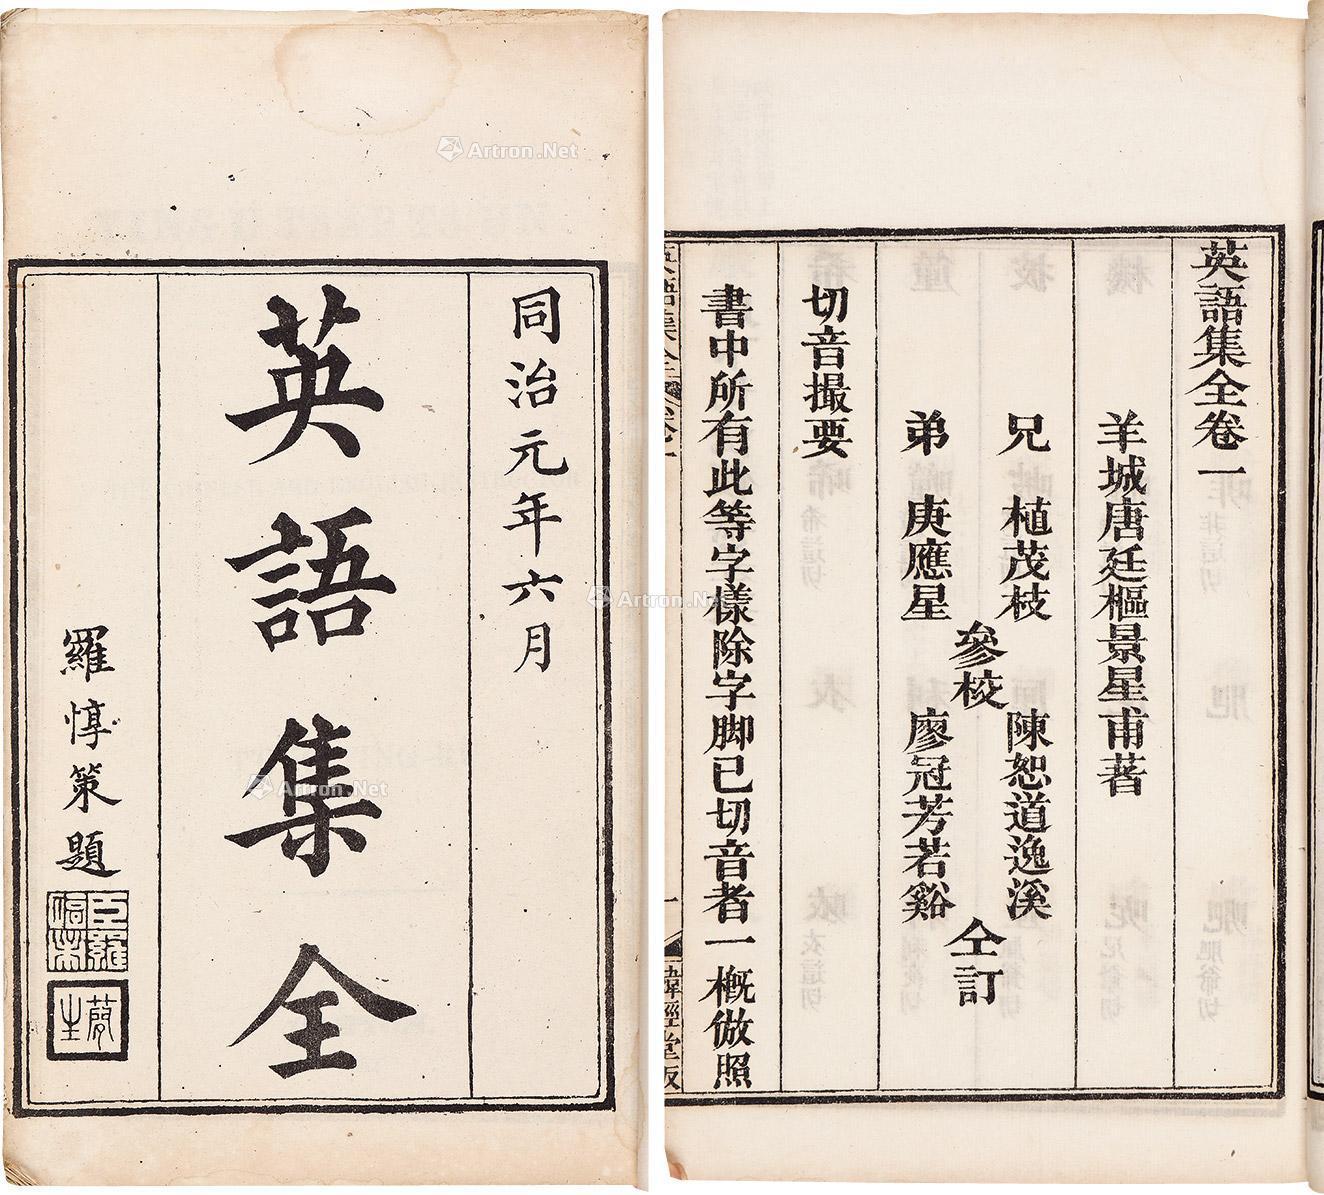 同治元年六月
英語集全
羅惇策題
英語集全卷一
羊城唐廷樞景星甫著
兄 植茂枝
弟 庚應星
參校
陳恕道逸溪
廖冠芳若谿
仝訂
切音撮要
書中所有此等字樣除字脚已切音者一概倣照
英語集全 卷一
一
緯經堂板
Artron.Net
Artron.Net
Artron.Net